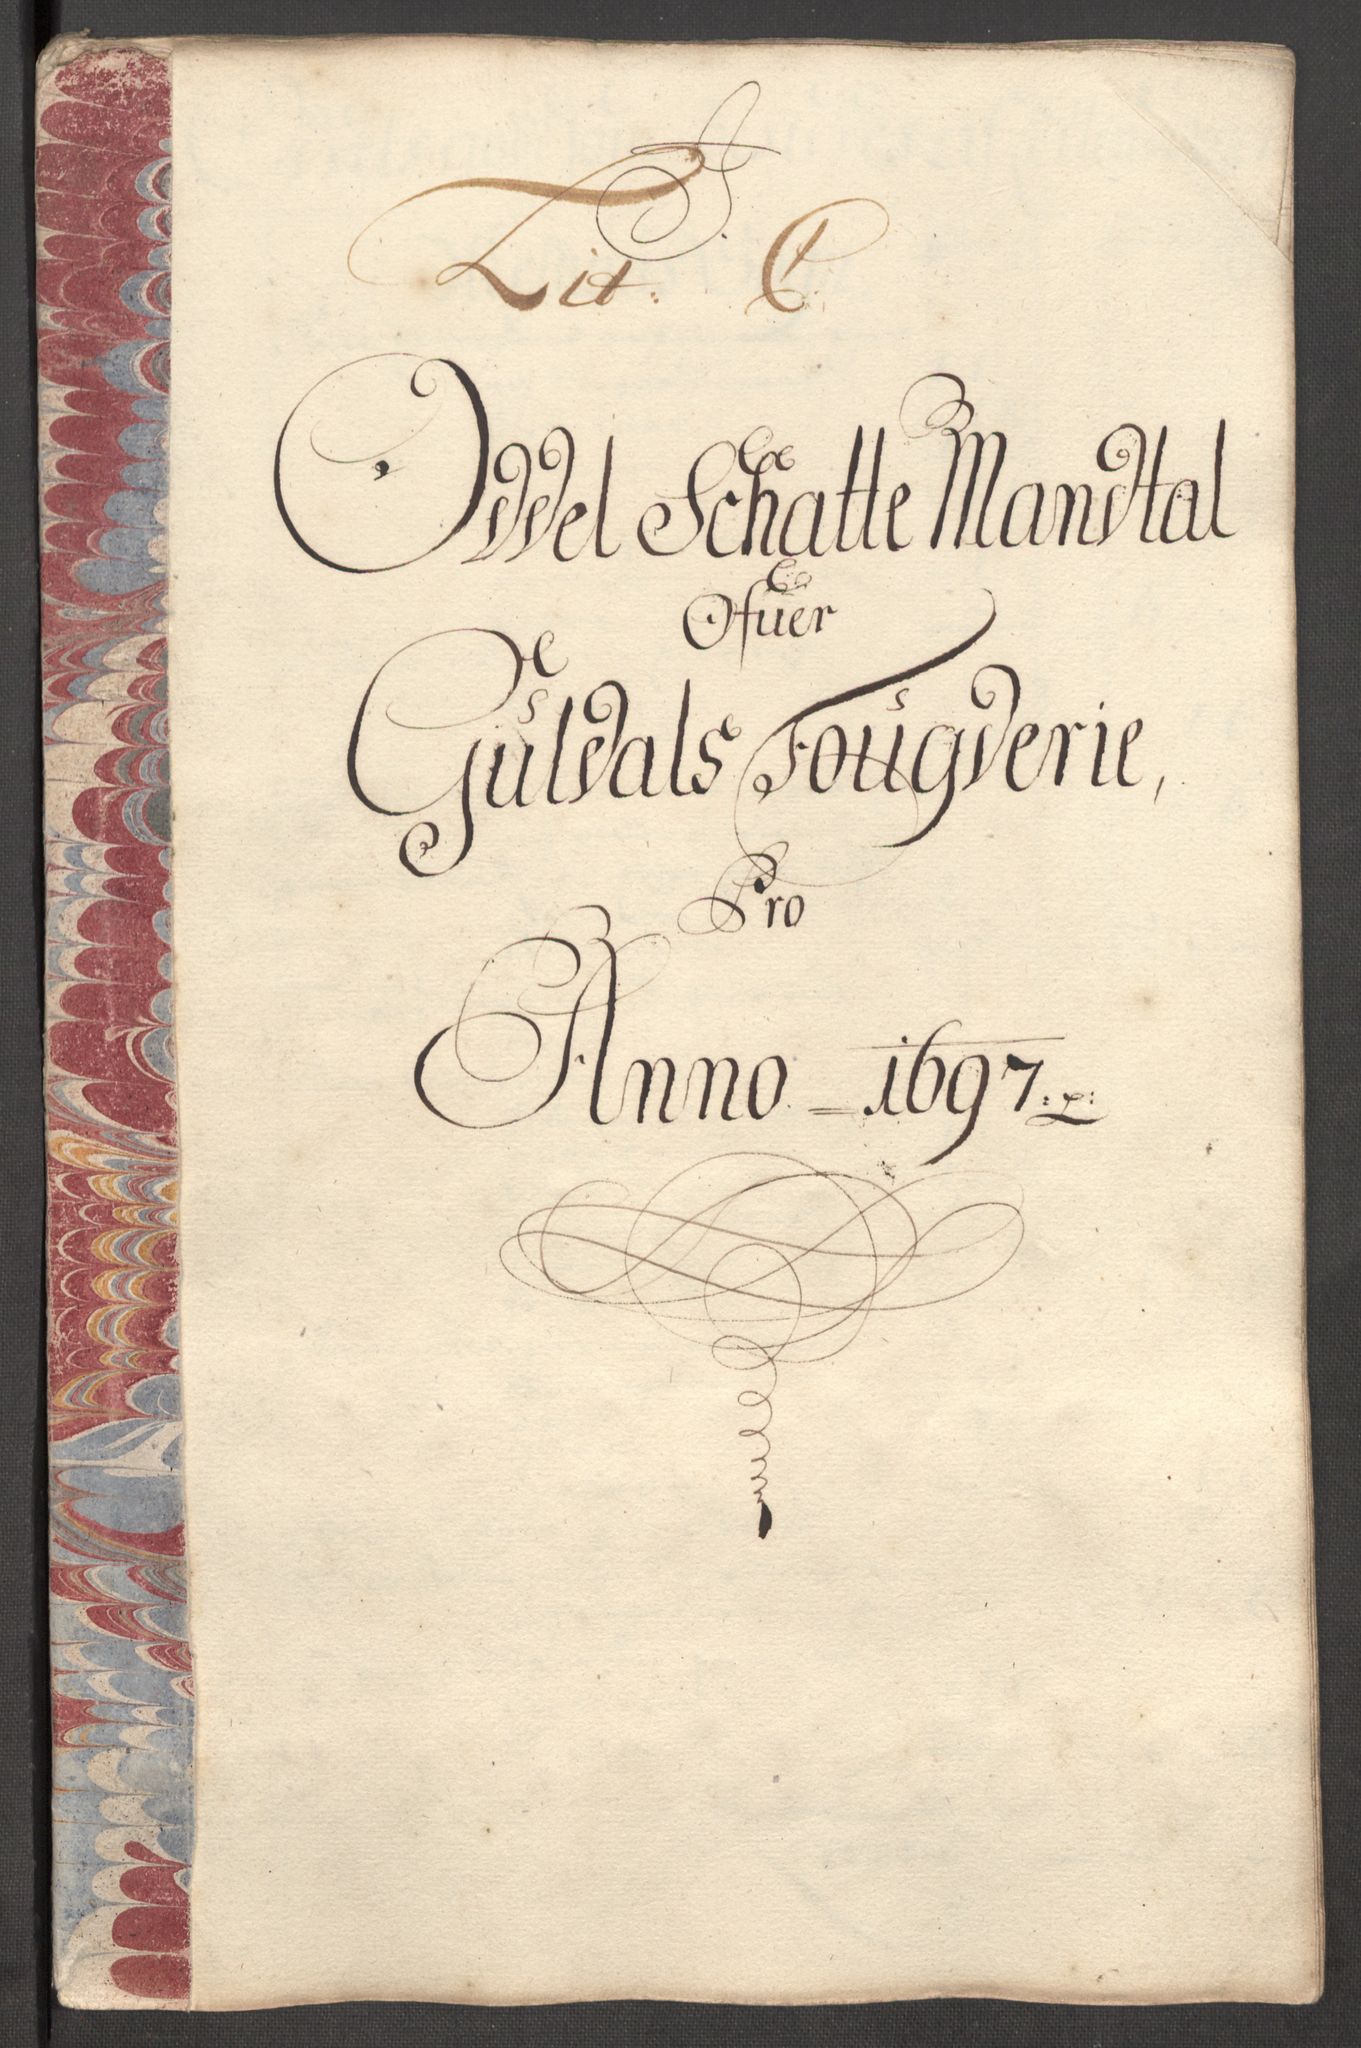 Lit: C.
Oddel Schatte Mandtal
Ofuer
Guldals Fougderie,
Pro
Anno = 1697